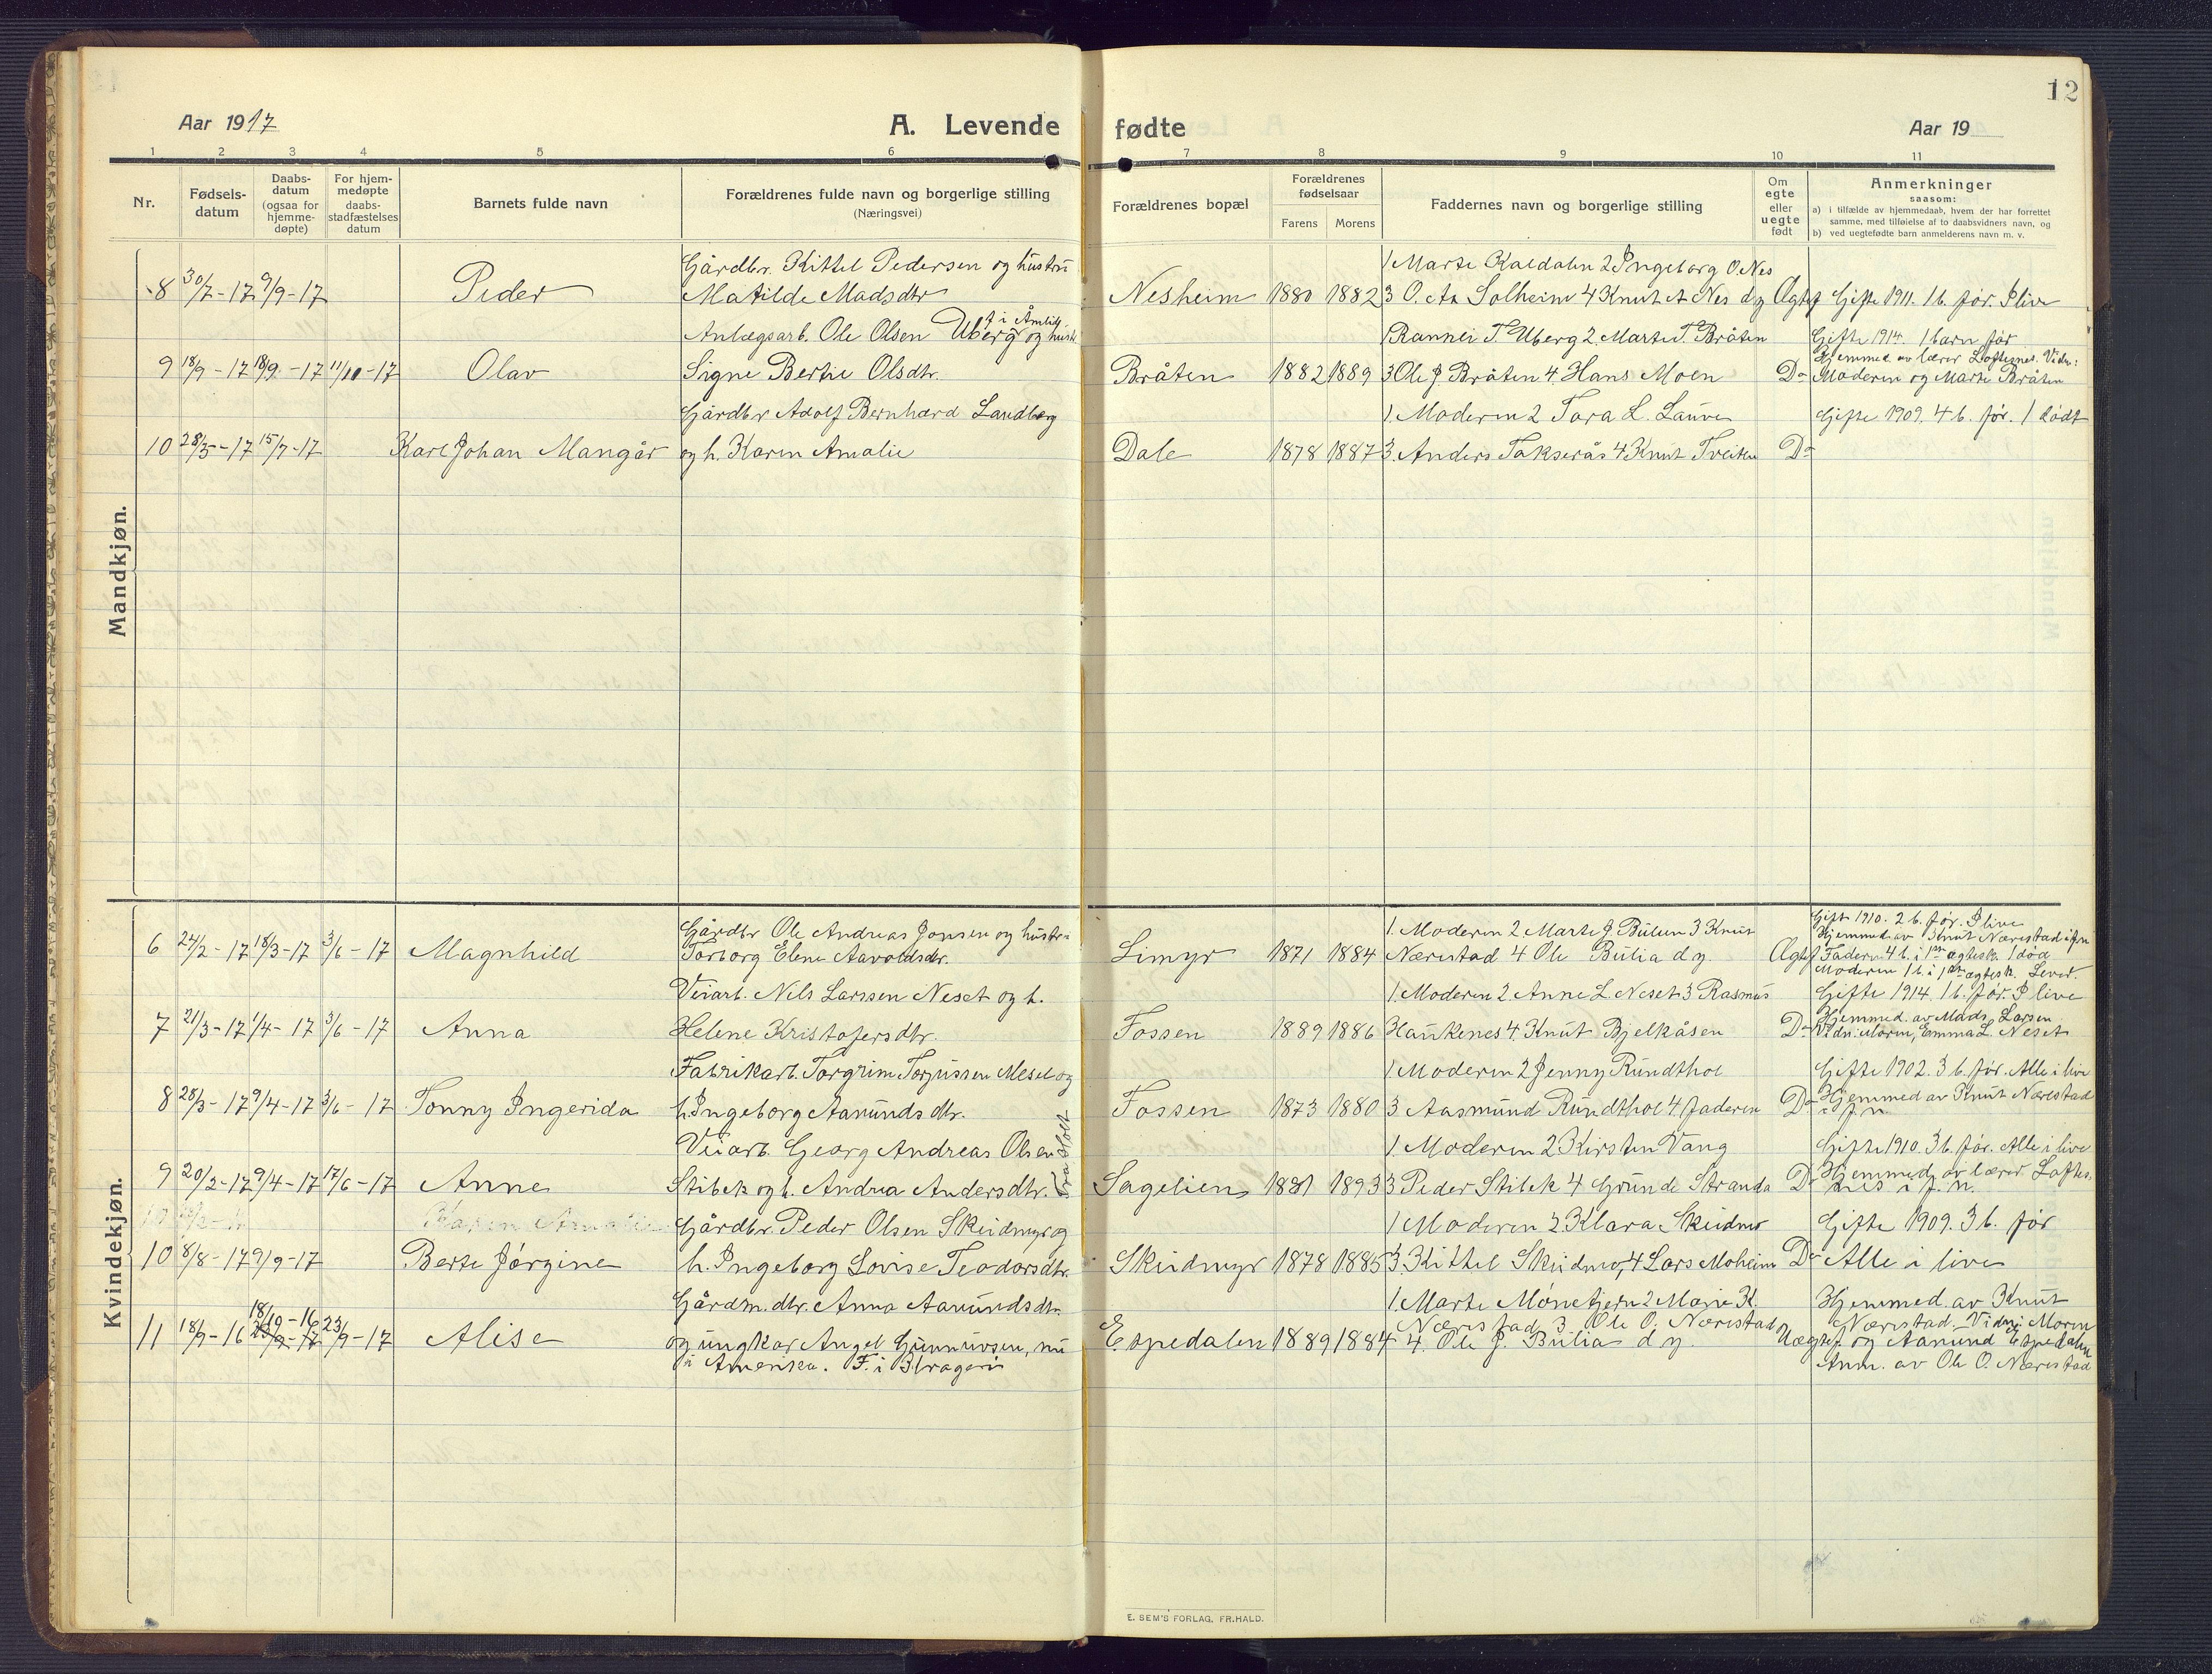 12
Aar 1917
A. Levende fødte
Aar 19
1 2 3 4 5 6 7 8 9 10 11
Nr.
Fødsels-
datum
Daabs-
datum
(ogsaa for
hjemme-
døpte)
For hjem-
medøpte
daabs-
stadfæstelses
datum
Barnets fulde navn
Forældrenes fulde navn og borgerlige stilling
(Næringsvei)
Forældrenes bopæl
Forældrenes
fødselsaar
Farens Morens
Faddernes navn og borgerlige stilling
Om
egte
eller
uegte
født
Anmerkninger
saasom:
a) i tilfælde av hjemmedaab, hvem der har forrettet
samme, med tilføielse af to daabsvidners navn, og
b) ved uegtefødte barn anmelderens navn m. v.
Mandkjøn.
Gårdbr. Kittel Pedersen og hustru
1 Marte Kaldahn 2 Ingeborg O. Nes
8 30/7-17 9/9-17 Peder Matilde Madsdtr Nesheim 1880 1882 3 O. Aa Solheim 4 Knut A Nes d y Ægtef Gifte 1911. 1 b. før. I live
Anlægsarb. Ole Olsen Uberg og hustr
f i Åmlid
1 Rannei T. Uberg 2. Marte T. Bråten Gifte 1914. 1 barn før
9 18/9-17 18/9-17 11/10-17 Olav Signe Bertie Olsdtr. Bråten 1882 1889 3 Ole J Bråten 4. Hans Moen Do
Hjemmed. av lærer Loftesnes. Vidn:
Moderen og Marte Bråten
Gårdbr Adolf Bernhard Landberg 1. Moderen 2 Tora L. Lauve Gifte 1909. 4 b. før. 1 dødt
10 28/5-17 15/7-17 Karl Johan Mangår og h. Karen Amalie Dale 1878 1887 3. Anders Takserås 4 Knut Tveiten Do
Kvindekjøn.
Gårdbr Ole Andreas Jonsen og hustru 1. Moderen 2 Marte J Bulien 3 Knut
Gift 1910. 2 b. før. I live
Hjemmed. av Knut Nærestad i f n
6 24/2-17 18/3-17 3/6-17 Magnhild Torborg Elene Aavoldsdr. Limyr 1871 1884 Nærestad 4 Ole Bulia d y. Ægtef Faderen 4 b. i 1ste ægtesk. 1 død
Moderen 1 b. i 1ste ægtesk. Lever.
Veiarb. Nils Larssen Neset og h. 1. Moderen 2. Anne L Neset 3 Rasmus Gifte 1914. 1 b. før. I live
7 21/3-17 1/4-17 3/6-17 Anna Helene Kristofersdtr. Fossen 1889 1886 Haukenes 4. Knut Bjelkåsen Do
Hjemmed. av Mads Larsen
Vidn: Moren, Emma L. Neset
Fabrikarb. Torgrim Torjussen Mesel og 1 Moderen 2 Jenny Rundthol Gifte 1902. 3 b. før. Alle i live
8 28/3-17 9/4-17 3/6-17 Tonny Ingerida h. Ingeborg Aanundsdtr. Fossen 1873 1880 3 Aasmund Rundthol 4 Faderen Do Hjemmed av Knut Nærestad
i f. n.
Veiarb. Georg Andreas Olsen 1. Moderen 2. Kirsten Vang Gifte 1910. 3 b. før. Alle i live
9 20/2-17 9/4-17 17/6-17 Anne Stibek og h. Andrea Andersdtr. fra Holt Sagelien 1881 1893 3 Peder Stibek 4 Grunde Stranda Do Hjemmed. av lærer Loftes-
nes i f. n.
Gårdbr. Peder Olsen Skeidmyr og 1 Moderen 2. Klara Skeidmo Gifte 1909. 3 b. før
10 8/8-17 9/9-17 Berte Jørgine h. Ingeborg Lovise Teodorsdtr. Skeidmyr 1878 1885 3. Kittel Skeidmo, 4 Lars Moheim Do Alle i live
Gårdm. dtr. Anna Aanundsdtr. 1. Marte Mónetjern 2 Marie K. Hjemmed. av Knut
18/10-16
11 18/9-16 23/9-17 23/9-17 Alise og ungkar Angel Gunnuvsen, nu Espedalen 1889 1884
Nærestad 3 Ole O. Nærestad
4. Ole J. Bulia d y. Uægtef.
Nærestad. Vidn: Moren
og Aanund Espedalen
i Amerika. F. i Kragerø Anm. av Ole O. Nærestad
E. SEM'S FORLAG, FR.HALD.